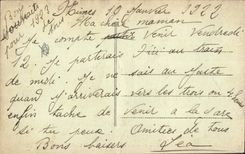 Bons
souhaits
pour 1923
de tous
Nimes 10 Janvier 1922
Ma chère maman
Je compte venir Vendredi
12. Je partirais d'ici au train
de midi. Je ne sais au juste
quand j'arriverais vers les trois ou 4
enfin tache de venir à la gare
si tu peux. Amitiés de tous
Bons baisers Léa